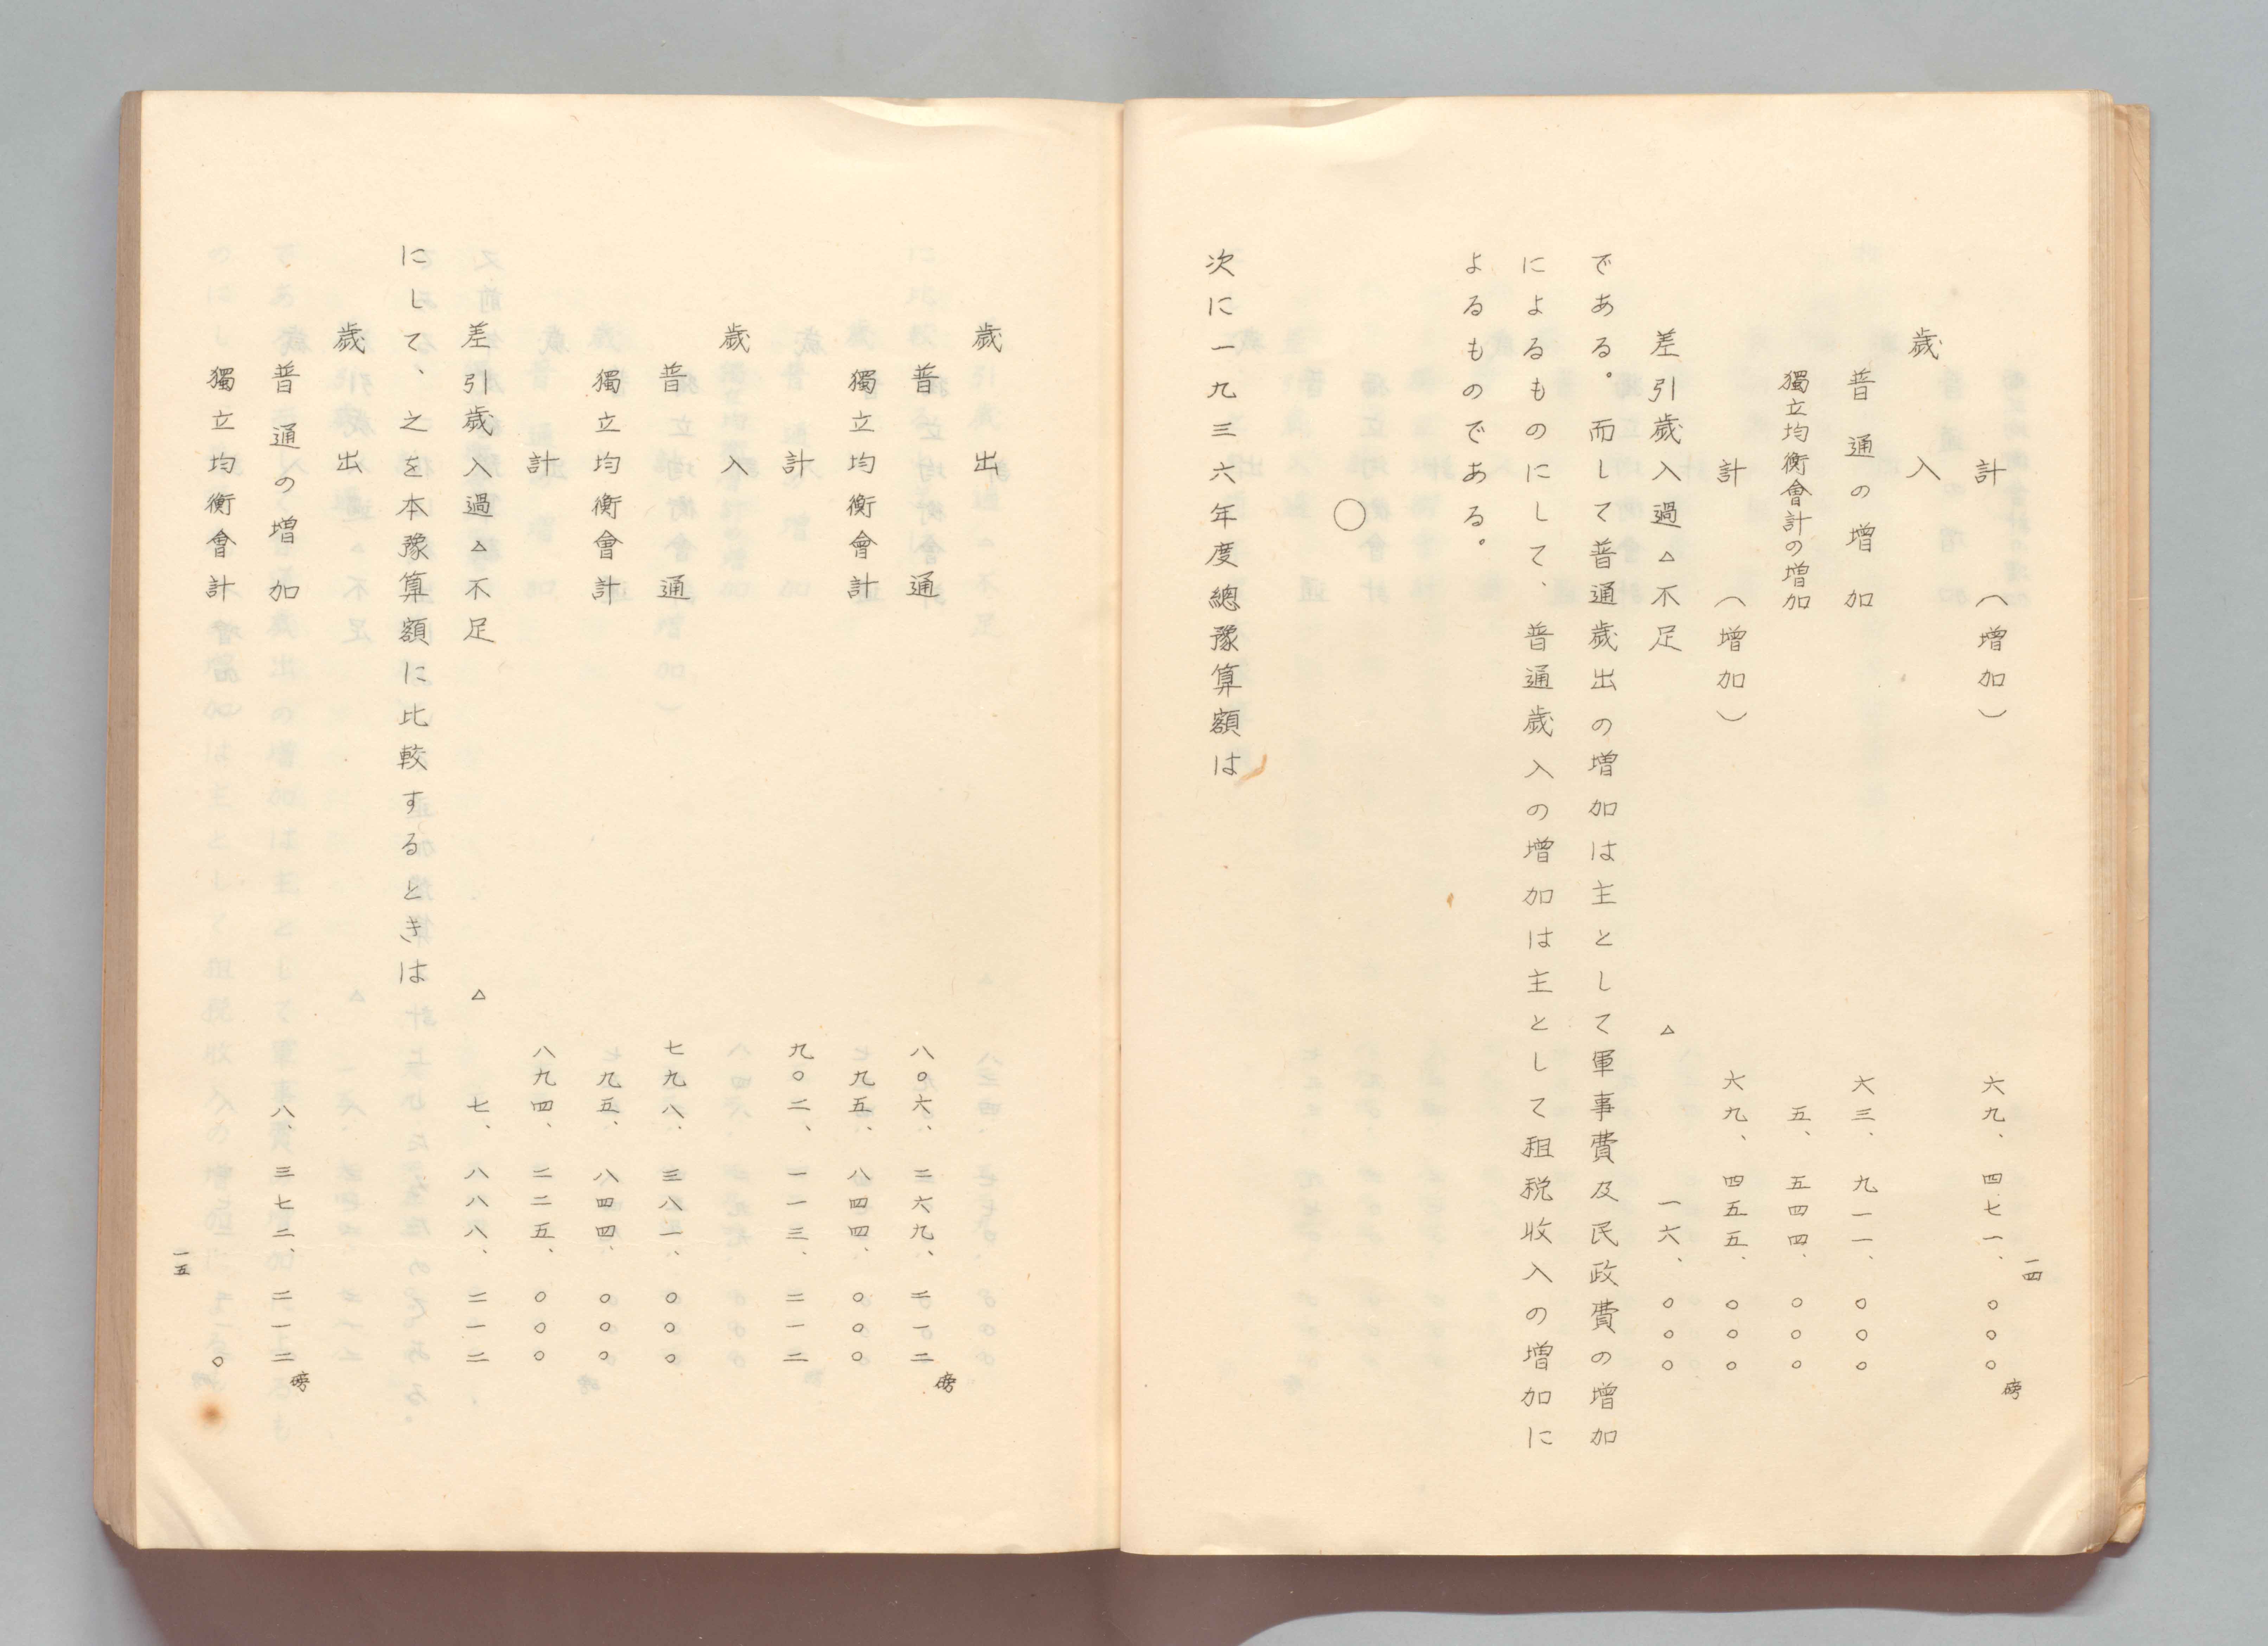 計　（増加）　六九、四七一、〇〇〇磅
歳入
普通の増加　六三、九一一、〇〇〇
獨立均衡會計の増加　五、五四四、〇〇〇
計　（増加）　六九、四五五、〇〇〇
差引歳入過△不足　△　一六、〇〇〇
である。而して普通歳出の増加は主として軍事費及民政費の増加
によるものにして、普通歳入の増加は主として租税收入の増加に
よるものである。
〇
次に一九三六年度總豫算額は
一四
歳出
普通　八〇六、二六九、二一二磅
獨立均衡會計　九五、八四四、〇〇〇
計　九〇二、一一三、二一二
歳入
普通　七九八、三八一、〇〇〇
獨立均衡會計　九五、八四四、〇〇〇
計　八九四、二二五、〇〇〇
差引歳入過△不足　△　七、八八八、二一二
にして、之を本豫算額に比較するときは
歳出
普通の増加　八、三七二、二一二磅
獨立均衡會計　〇
一五